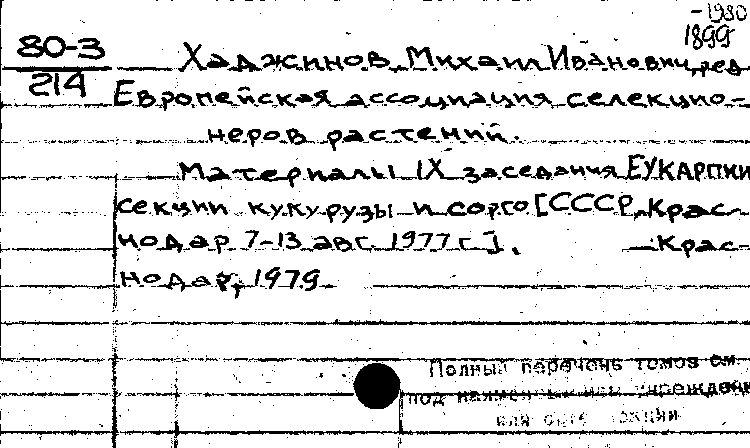 -1980
1899
80-3
214
Хаджинов, Михаил Иванович, ред
Европейская ассоциация селекцио-
неров растений.
Материалы IX заседания ЕУКАРПИИ
секции кукурузы и сорго [СССР, Крас-
нодар 7-13 авг. 1977 г.]. Крас-
нодар, 1979
Полный перечень томов см.
под наименованием учреждени
или